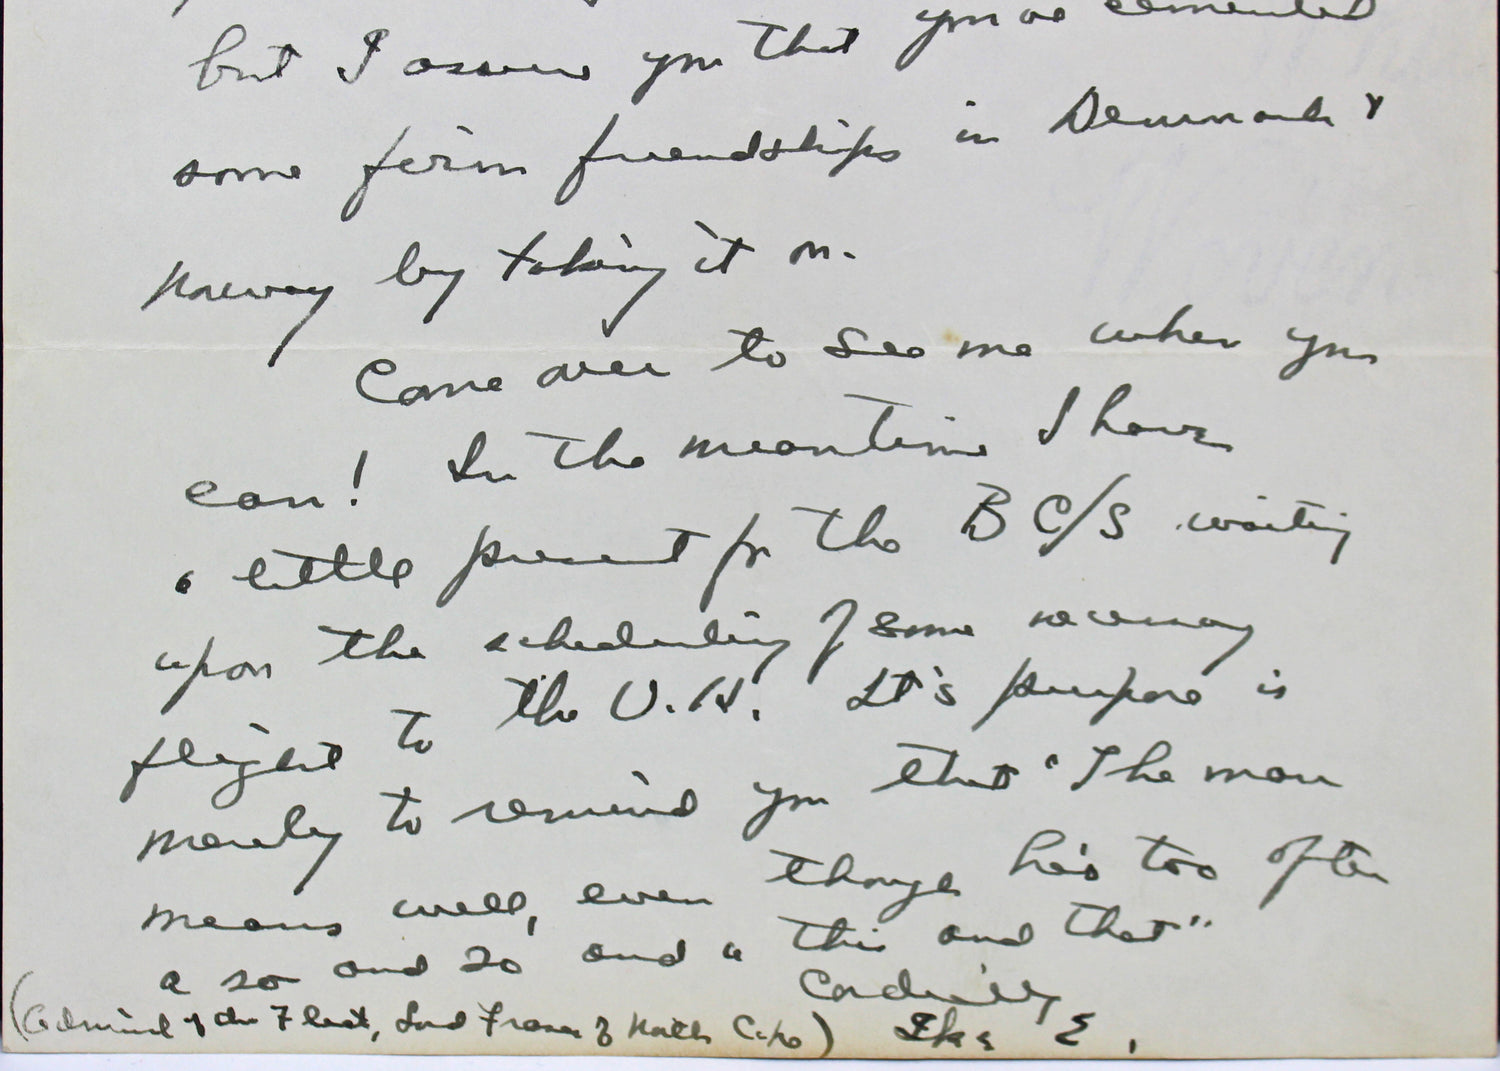 but I assure you that you've cemented
some firm friendships in Denmark &
Norway by taking it on.
Come over to see me when you
can! In the meantime I have
a little present for the B C/S waiting
upon the scheduling of some necessary
flight to the U.K. It's purpose is
merely to remind you that "The man
means well, even though he's too often
a so and so' and a this and that"
Cordially
(Admiral of the Fleet, Lord Fraser of North Cape) Ike E.